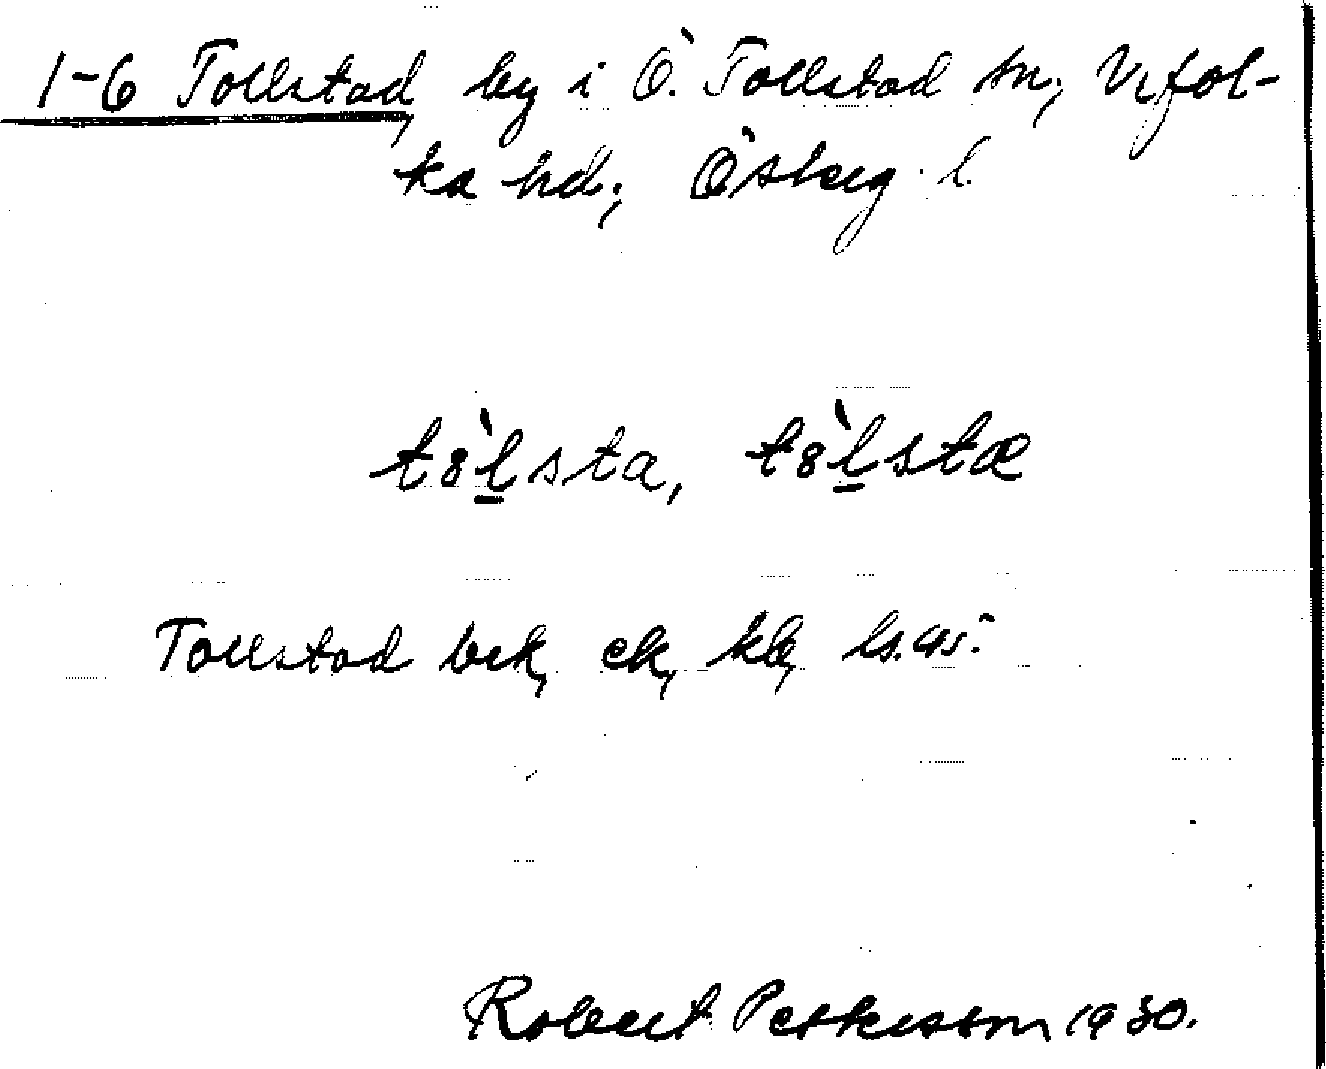 1-6 Tollstad, by i Ö. Tollstad sn, Vifol-
ka hd; Östeg. l.
tòlsta, tòlstæ
Tollstad bek, ek, kb,
Robert Pettersson 1930.